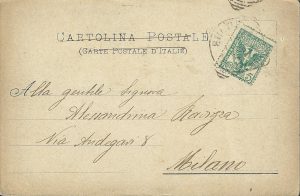 CARTOLINA POSTALE
(CARTE POSTALE D'ITALIE)
Alla gentile Signora
Alessandrina
Via Andegari 8
Milano